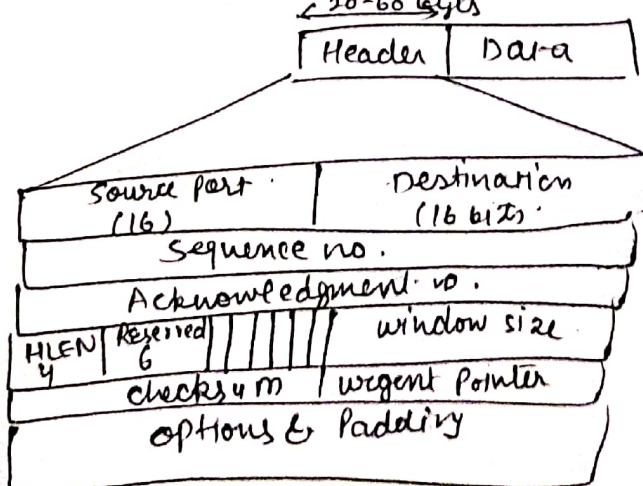 20-60 bytes
Header Data
Source port Destination
(16) (16 bits)
Sequence no.
Acknowledgment no.
HLEN Reserved window size
4 6
checksum urgent Pointer
options & Padding